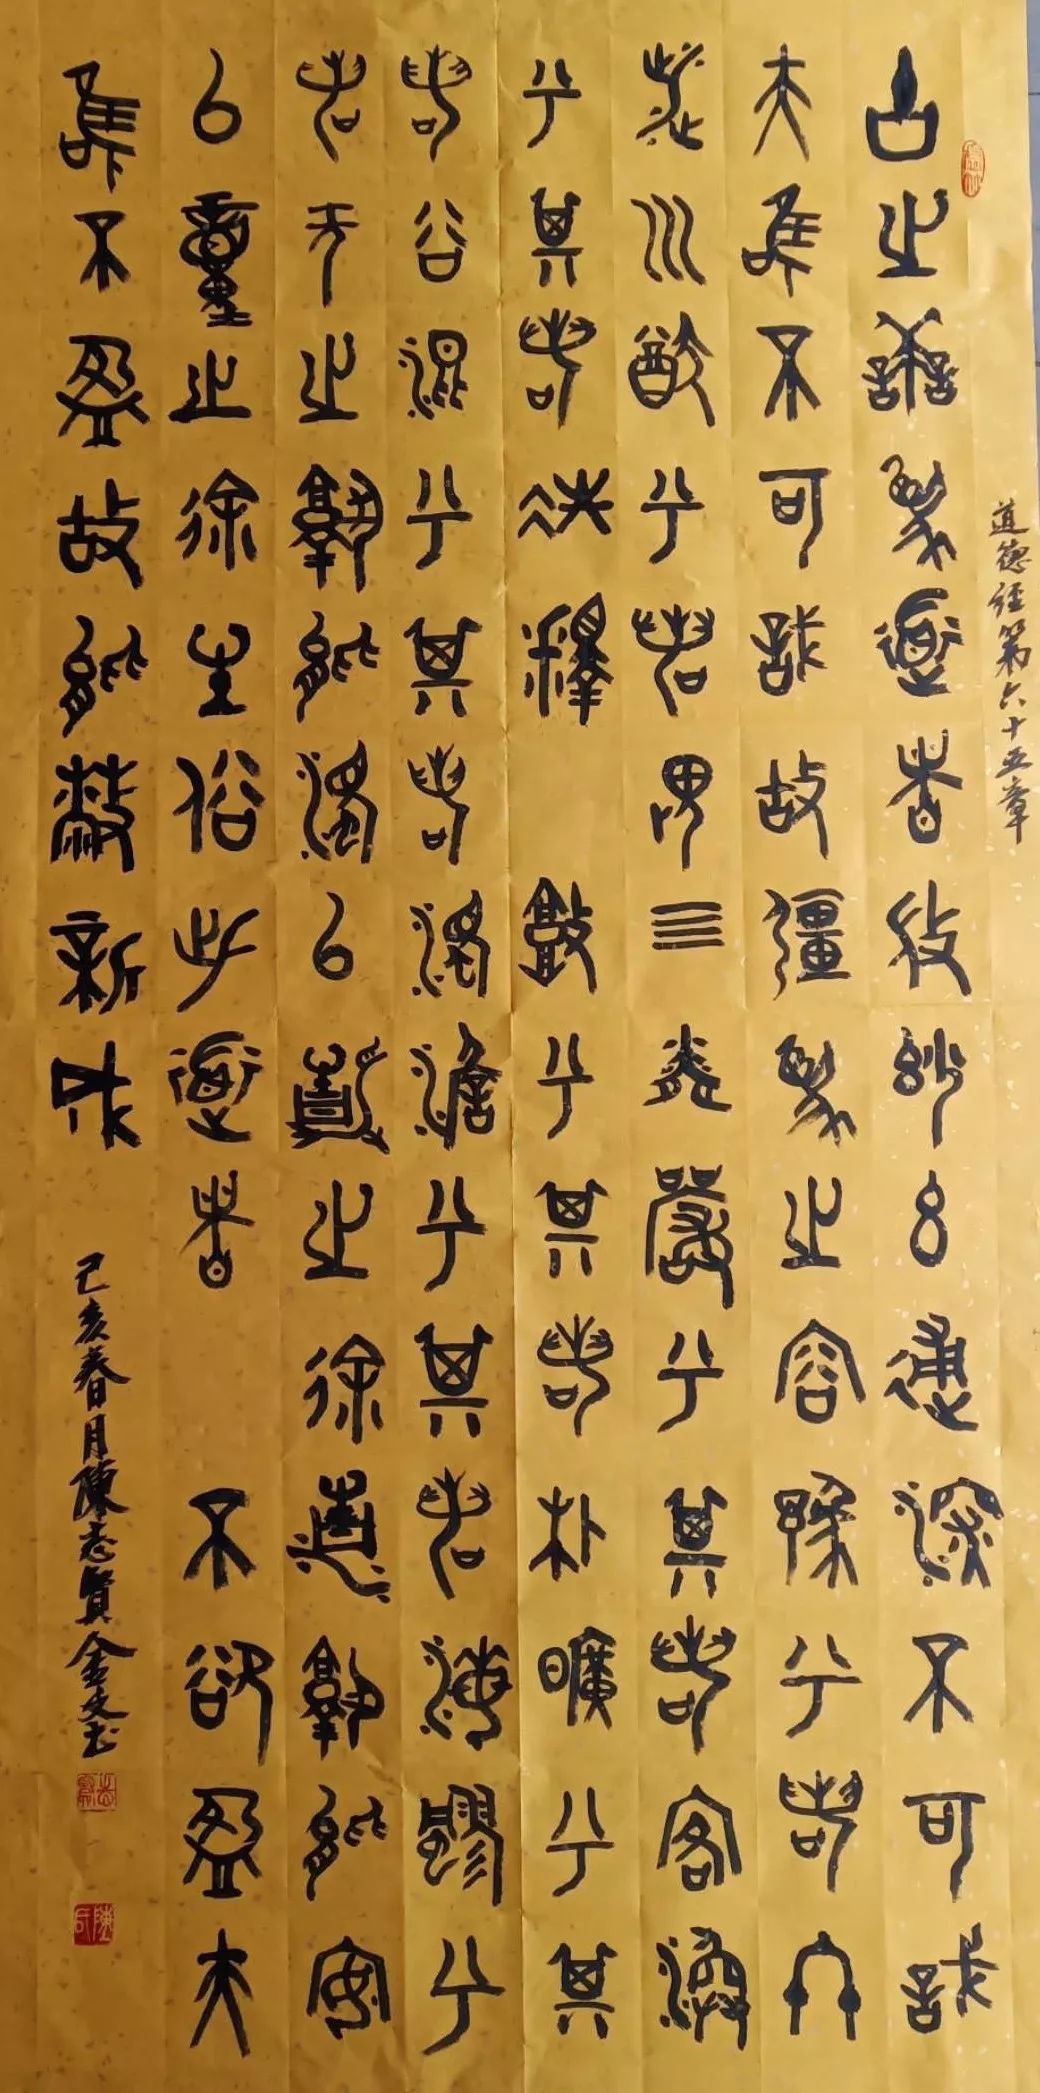 道德經第六十五章
古之善為道者微妙玄通深不可識
夫唯不可識故彊為之容豫兮若冬
涉川猶兮若畏四鄰嚴兮其若客渙
兮其若冰釋敦兮其若朴曠兮其
若谷混兮其若濁澹兮其若海飂兮
若无止孰能濁以靜之徐清孰能安
以重之徐生俗此道者不欲盈夫
唯不盈故能蔽新成
己亥春月陳志賢金文書